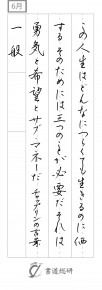 6月
この人生はどんなにつらくても生きるのに価
する そのためには三つのことが必要だ それは
勇気と希望とサム・マネーだ チャップリンの言葉
一般
書道総研